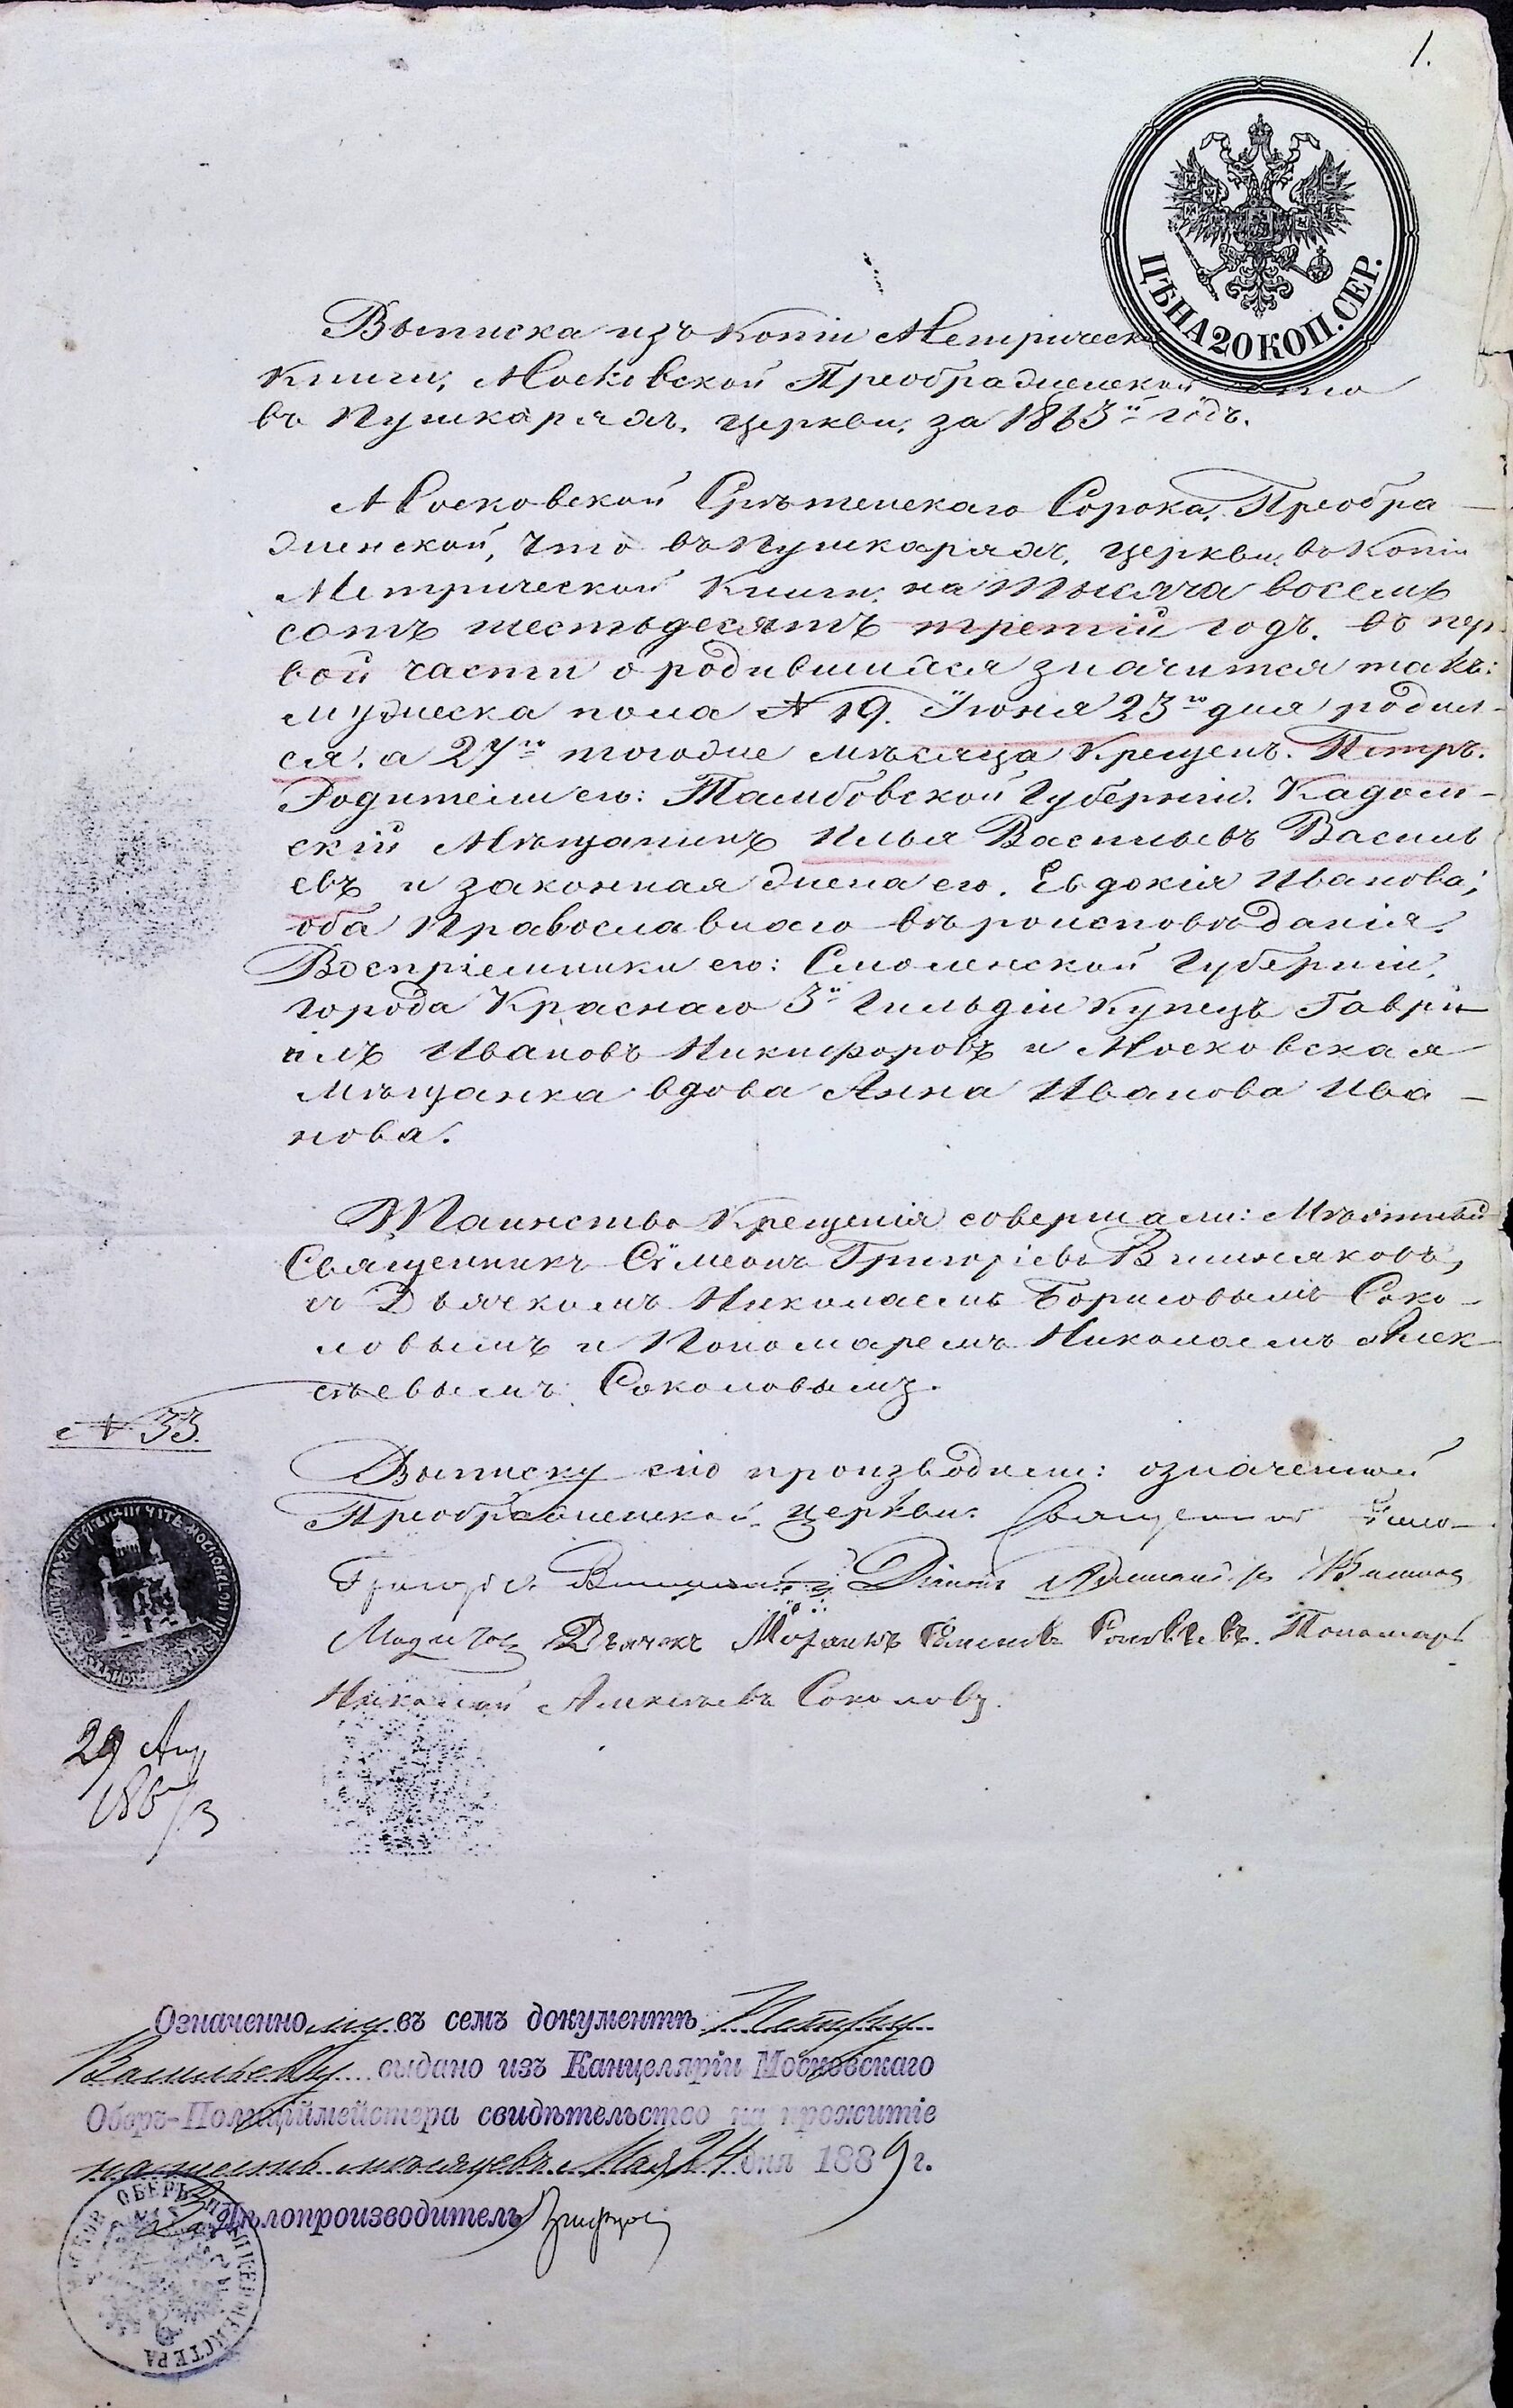 1.
ЦѢНА 20 КОП. СЕР.
Выписка изъ Копіи Метрическ
Книги, Московской Преображенской что
въ Пушкаряхъ, церкви, за 1863й годъ.
Московской Срѣтенскаго Сорока, Преобра
женской, что въ Пушкаряхъ, церкви, въ Копіи
Метрической Книги, на тысяча восемь
сотъ шестьдесятъ третій годъ. въ пер
вой части о родившихся значится такъ:
мужеска пола № 19. Іюня 23го дня родил-
ся, а 27го тогоже мѣсяца крещенъ. Петръ.
Родители его: Тамбовской Губерніи. Кадом-
скій Мѣщанинъ Илья Васильевъ Василь
евъ и законная жена его. Евдокія Иванова;
оба Православнаго вѣроисповѣданія.
Воспріемники его: Смоленской Губерніи,
города Краснаго 3й Гильдіи Купецъ Гаврі-
илъ Ивановъ Никифоровъ и Московская
Мѣщанка вдова Анна Иванова Ива-
нова.
Таинство Крещенія совершали: Мѣстный
Священникъ Сѵмеонъ Григорьевъ Вишняковъ,
съ Дьячкомъ Николаемъ Борисовымъ Соко-
ловымъ и Пономаремъ Николаемъ Алек-
сѣевымъ Соколовымъ.
№ 33.
Выписку сію производили: означенной
Преображенской церкви. Священникъ
Григорьевъ Дьячекъ Пономарь
Николай Алексѣевъ Соколовъ.
29 Авг
1863
Означенному въ семъ документѣ Петру
Васильеву выдано изъ Канцеляріи Московскаго
Оберъ-Полиціймейстера свидѣтельство на прожитіе
на шесть мѣсяцевъ Мая 24 дня 1889 г.
Дѣлопроизводитель